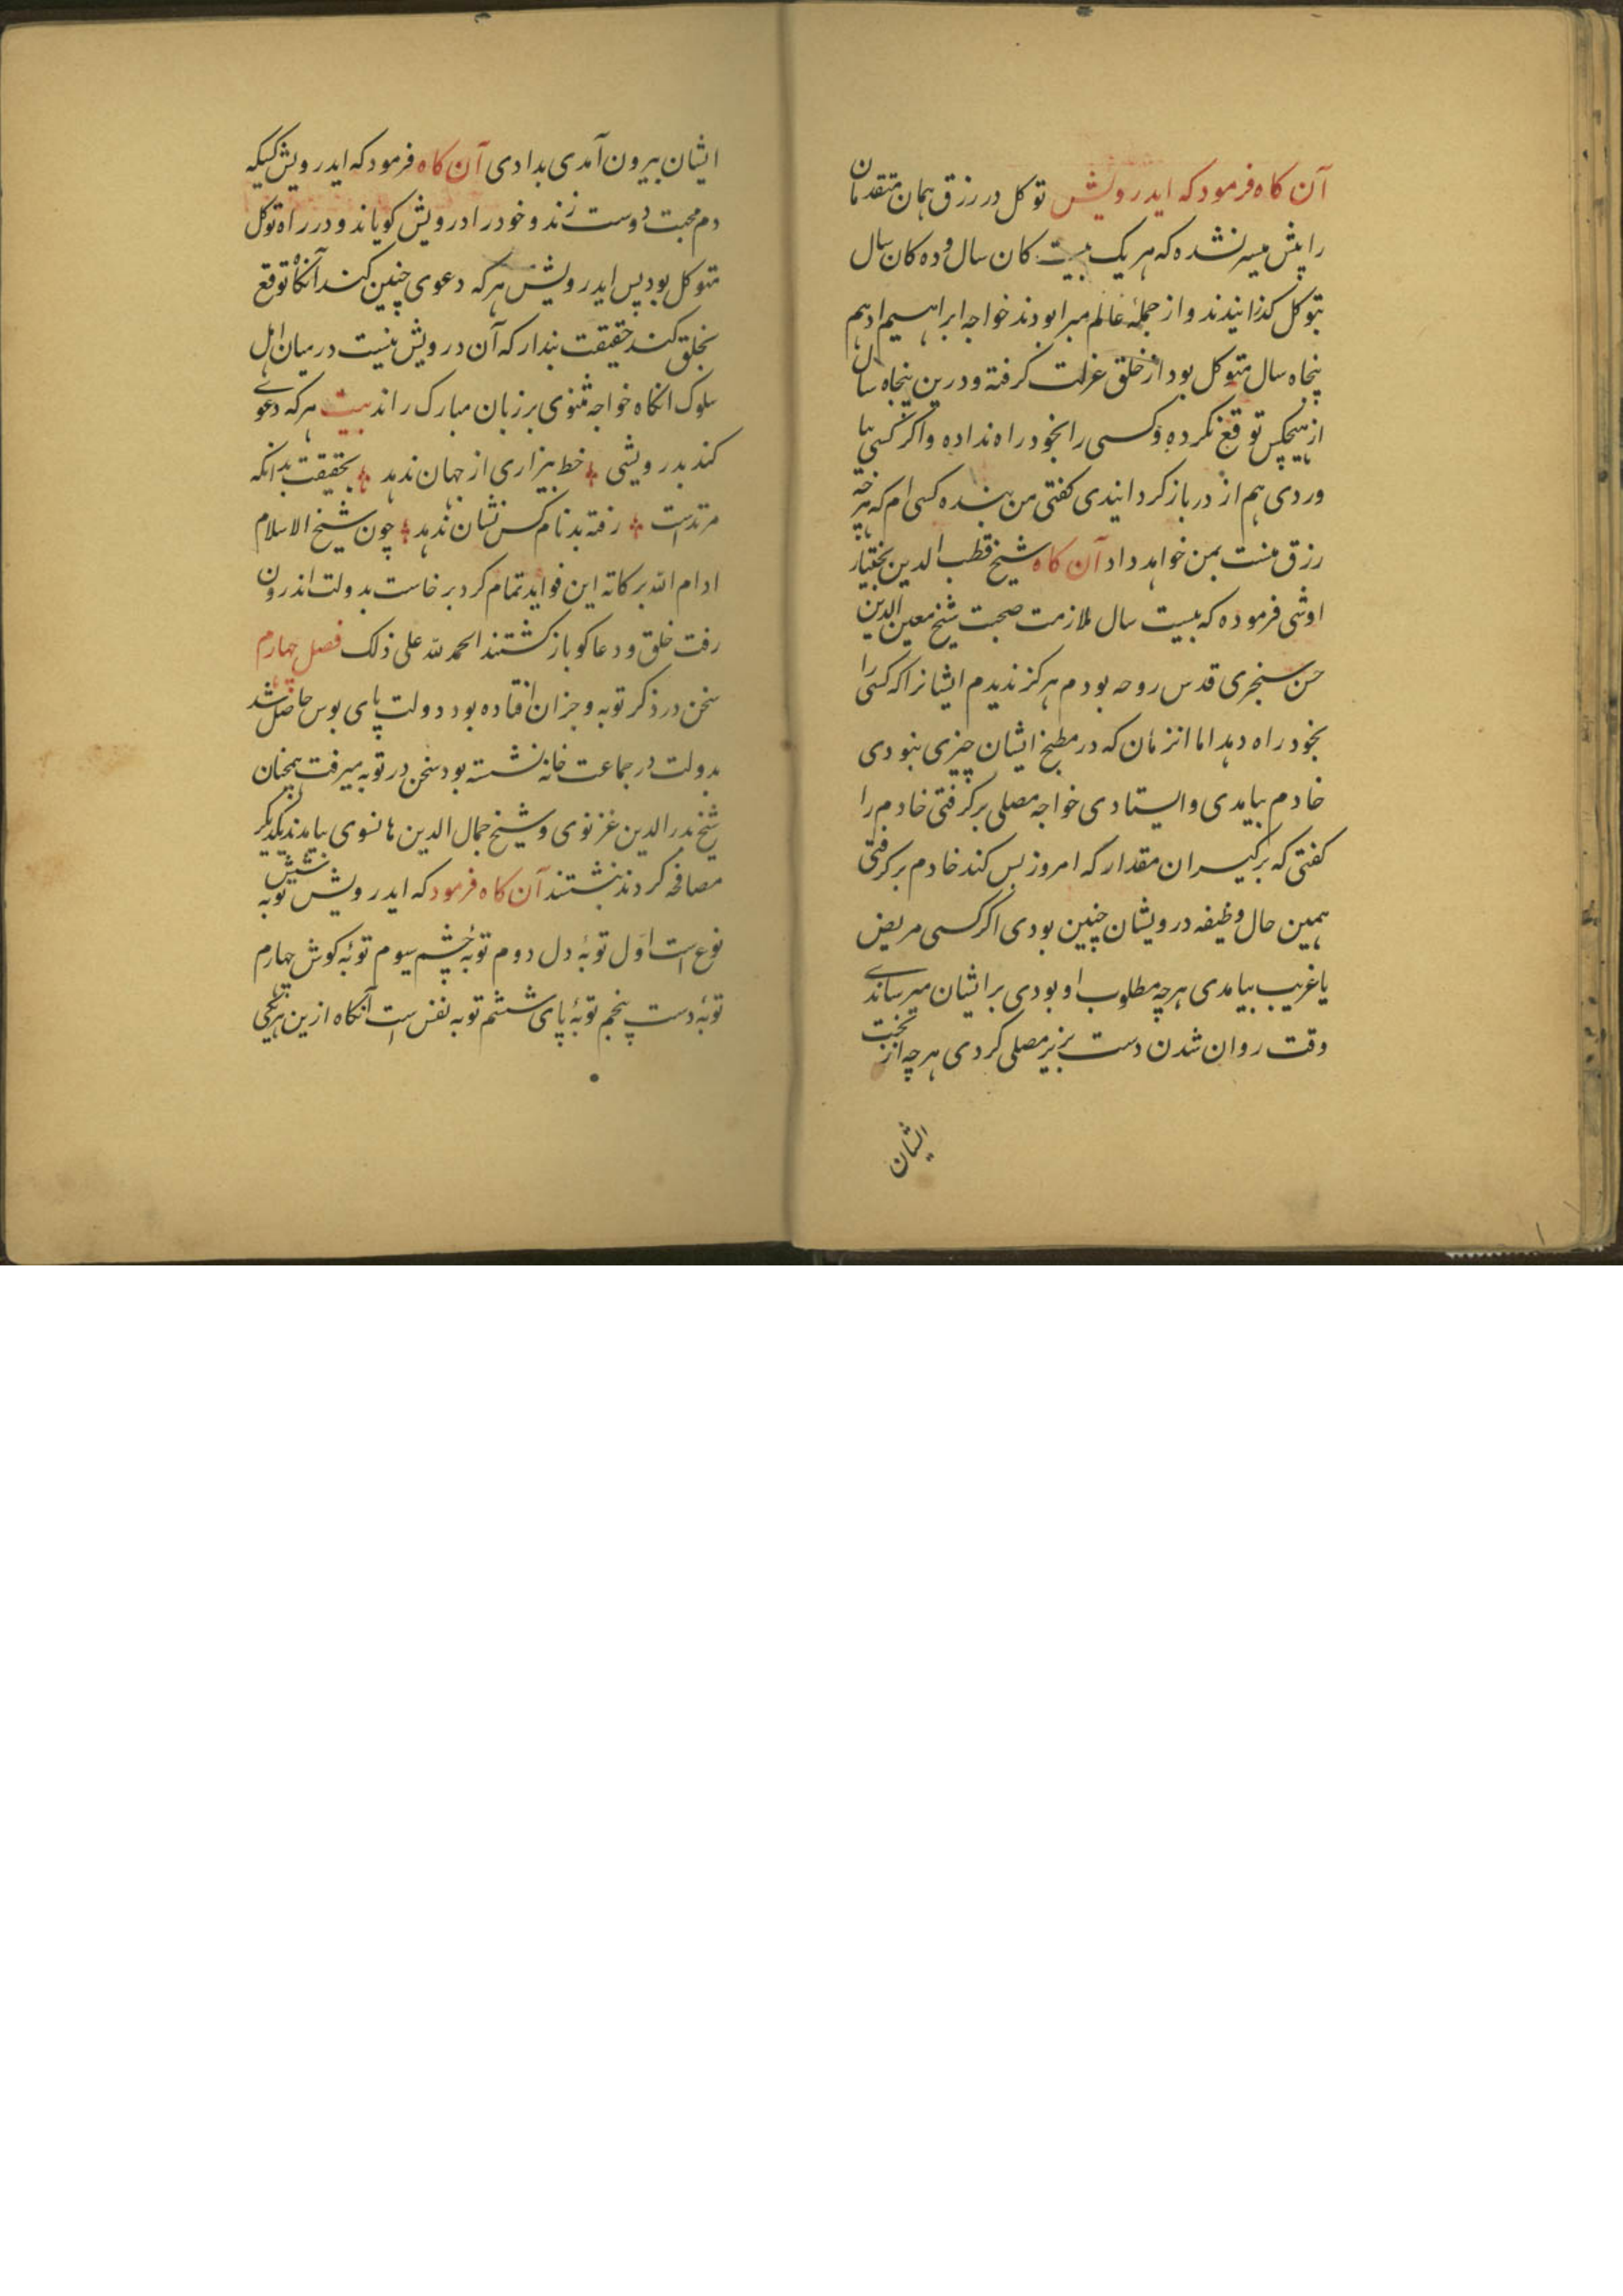 آن کاه فرمود که ایدرویش توکل در رزق همان متقدمان
را پیش میسر نشده که هر یک بیست کان سال و ده کان سال
بتوکل کذرانیدند و از جملهٔ عالم مبرا بودند خواجه ابراهیم ادهم
پنجاه سال متوکل بود از خلق عزلت کرفته و درین پنجاه سال
از هیچکس توقع نکرده و کسی را بخود راه نداده و اکر کسی بیا
وردی هم از در باز کردانیدی کفتی من بنده کسی ام که هرچه
رزق منست بمن خواهد داد آن کاه شیخ قطب الدین بختیار
اوشی فرموده که بیست سال ملازمت صحبت شیخ معین الدین
حسن سنجری قدس روحه بودم هرکز ندیدم ایشانرا که کسی را
بخود راه دهد اما انزمان که در مطبخ ایشان چیزی نبودی
خادم بیامدی و ایستادی خواجه مصلی برکرفتی خادم را
کفتی که برکیر ان مقدار که امروز بس کند خادم برکرفتی
همین حال وظیفه درویشان چنین بودی اکر کسی مریض
یا غریب بیامدی هرچه مطلوب او بودی بر ایشان میرساندے
وقت روان شدن دست بزیر مصلی کردی هرچه از بخت
ایشان
ایشان بیرون آمدی بدادی آن کاه فرمود که ایدرویش کسیکه
دم محبت دوست زند و خود را درویش کویاند و در راه توکل
متوکل بود پس ایدرویش هرکه دعوی چنین کند آنکاه توقع
بخلق کند حقیقت بندار که آن درویش نیست درمیان اهل
سلوک انکاه خواجه مثنوی بر زبان مبارک راند بیت هرکه دعوے
کند بدرویشی خط بیزاری از جهان ندهد بحقیقت بدانکه
مرتد است رفته بد نام کس نشان ندهد چون شیخ الاسلام
ادام الله برکاته این فواید تمام کرد برخاست بدولت اندرون
رفت خلق و دعاکو باز کشتند الحمد لله علی ذلک فصل چهارم
سخن در ذکر توبه و جزان افتاده بود دولت پای بوس حاصل شد
بدولت در جماعت خانه نشسته بود سخن در توبه میرفت همچنان
شیخ بدر الدین غزنوی و شیخ جمال الدین هانسوی بیامدند یکدیکر
مصافحه کردند بنشستند آن کاه فرمود که ایدرویش توبه شش
نوع است اول توبهٔ دل دوم توبهٔ چشم سیوم توبهٔ کوش چهارم
توبهٔ دست پنجم توبهٔ پای ششم توبه نفس است آنکاه ازین هریکی